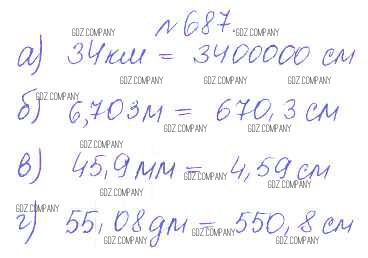 №687.
GDZ.COMPANY
а) 34км = 3400000 см
GDZ.COMPANY GDZ.COMPANY
GDZ.COMPANY GDZ.COMPANY GDZ.COMPANY
GDZ.COMPANY
б) 6,703м = 670,3 см
GDZ.COMPANY GDZ.COMPANY
GDZ.COMPANY
в) 45,9мм = 4,59 см
GDZ.COMPANY GDZ.COMPANY
GDZ.COMPANY
GDZ.COMPANY
г) 55,08дм = 550,8 см
GDZ.COMPANY
GDZ.COMPANY GDZ.COMPANY